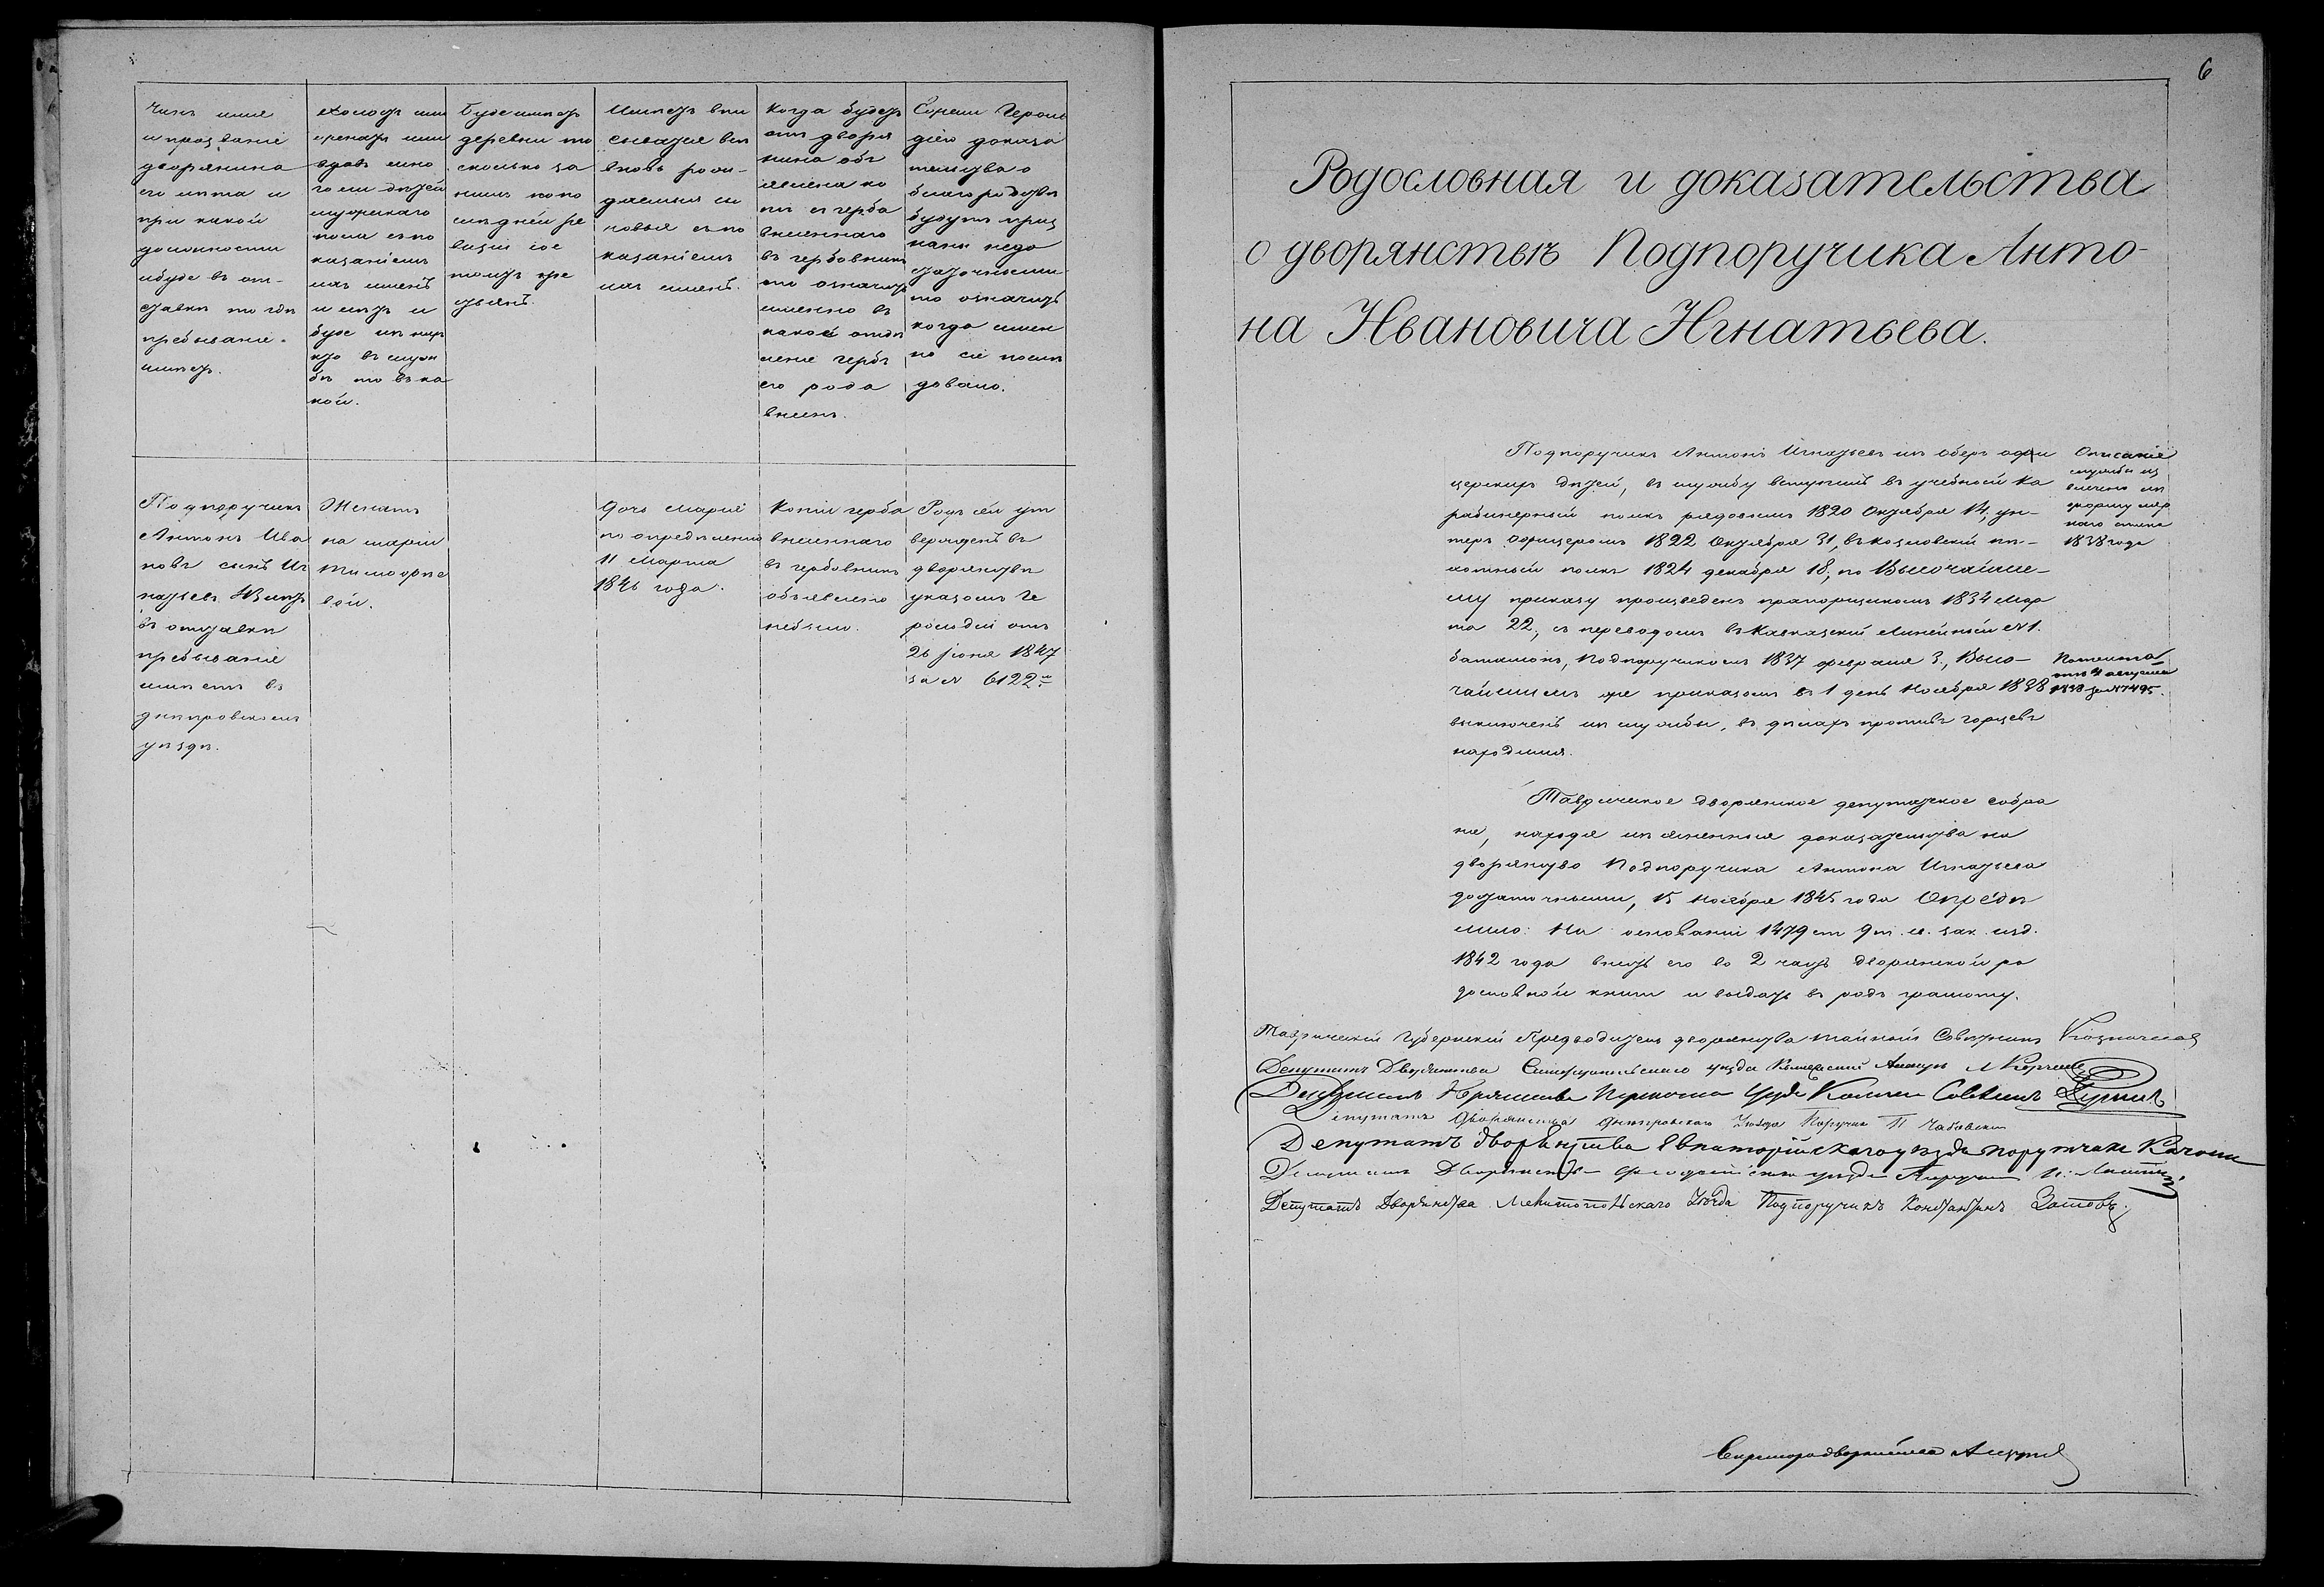 Чинъ имя
и прозваніе
дворянина
его лѣта и
при какой
должности
и буде въ от-
ставкѣ то гдѣ
пребываніе
имѣетъ.
Холостъ или
женатъ или
вдовъ мно
го ли дѣтей
мужскаго
пола съ по
казаніемъ
ихъ именъ
и лѣтъ и
буде изъ нихъ
кто въ служ
бѣ то въ ка
кой.
Буде имѣетъ
деревни то
сколько за
нимъ по по
слѣдней ре
визіи со
стоитъ кре
стьянъ.
Имѣютъ впи
сываться всѣ
вновь рож-
даемыя
съ по
казаніемъ
ихъ именъ.
Когда будетъ
отъ дворя
нина объ
явлена ко
пія съ герба
внесеннаго
въ гербовникъ
то означить
именно въ
какое отдѣ
леніе гербъ
его рода
внесенъ.
Герольдіею
доказа
тельства о
благородствѣ
будутъ приз
наны недо
статочными
то означить
когда имен
но сіе послѣ
довало.
Подпоручикъ
Антонъ Ива
новъ сынъ Иг
натьевъ
въ отставкѣ
пребываніе
имѣетъ въ
днѣпровскомъ
уѣздѣ.
Женатъ
на Маріи
Тимофѣе
вой.
Дочь Марія
по опредѣленію
11 Марта
1846 года.
Копіи герба
внесеннаго
въ гербовникъ
объявлено
небыло.
Родъ сей ут
вержденъ въ
дворянствѣ
указомъ Ге
рольдіи отъ
26 Іюня 1847
за № 6122.
6
Родословная и доказательства
о дворянствѣ Подпоручика Анто-
на Ивановича Игнатьева.
Подпоручикъ Антонъ Игнатьевъ изъ оберъ офи
церскихъ дѣтей, въ службу вступилъ въ учебный ка
рабинерный полкъ рядовымъ 1820 Октября 14, ун-
теръ офицеромъ 1822 Октября 31, въ козловскій пѣ-
хотный полкъ 1824 декабря 18, по Высочайше-
му приказу произведенъ прапорщикомъ 1834 Мар
та 22, съ переводомъ въ Кавказскій Линейный №1.
баталіонъ, Подпоручикомъ 1837 февраля 3, Высо-
чайшимъ же приказомъ въ 1 день Ноября 1838
выключенъ изъ службы, въ дѣлахъ противъ горцевъ
находился.
Описаніе
службы из
влечено изъ
формуляр
наго списка
1838 года
4 августа
1838 за №7495.
Таврическое дворянское депутатское собра
ніе, находя изъясненныя доказательства на
дворянство Подпоручика Антона Игнатьева
достаточными, 15 Ноября 1845 года Опредѣ
лило: На основаніи 1479 ст 9 т. св. зак. изд.
1842 года внесть его во 2 часть дворянской ро
дословной книги и выдать въ родъ грамоту.
Таврическій Губернскій Предводитель дворянства тайный Совѣтникъ Казначеевъ
Депутатъ Дворянства Симферопольскаго уѣзда
Депутатъ Дворянства уѣзда
Депутатъ Дворянства Днѣпровскаго Уѣзда Поручикъ
Депутатъ дворянства Евпаторійскаго уѣзда порутчикъ
Депутатъ Дворянства Феодосійскаго уѣзда Поручикъ
Депутатъ Дворянства Мелитопольскаго Уѣзда Подпоручикъ Константинъ
Секретарь дворянства